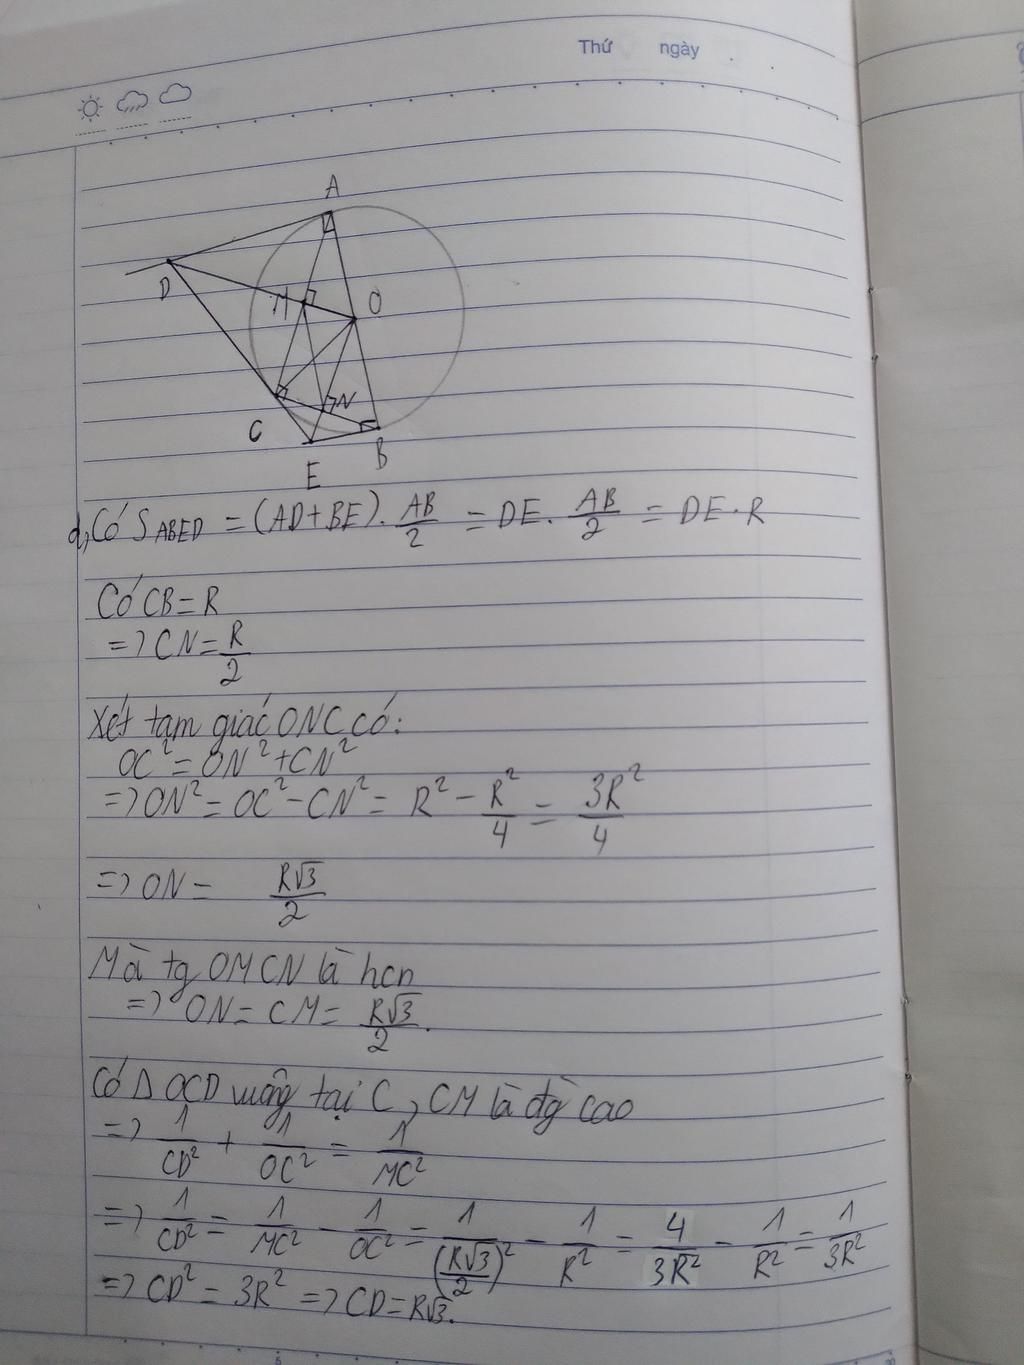 Thứ ngày
A
D
M
O
C
N
E
B
d, Có S_ABED = (AD+BE). AB/2 = DE. AB/2 = DE.R
Có CB = R
=> CN = R/2
Xét tam giác ONC có:
OC² = ON² + CN²
=> ON² = OC² - CN² = R² - R²/4 = 3R²/4
=> ON = R√3/2
Mà tg OMCN là hcn
=> ON = CM = R√3/2.
Có Δ OCD vuông tại C, CM là đg cao
=> 1/CD² + 1/OC² = 1/MC²
=> 1/CD² = 1/MC² - 1/OC² = 1/(R√3/2)² - 1/R² = 4/3R² - 1/R² = 1/3R²
=> CD² = 3R² => CD = R√3.